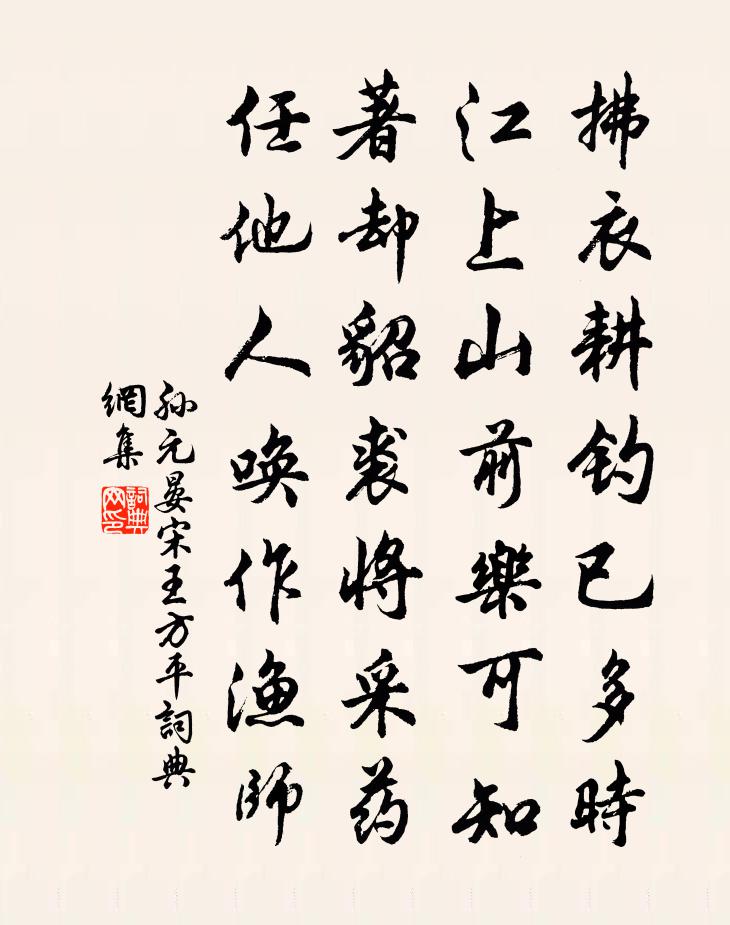 拂衣耕钓已多時
江上山前樂可知
著却貂裘將采药
任他人唤作漁師
孙元晏宋王方平詞典
網集
詞典
网印